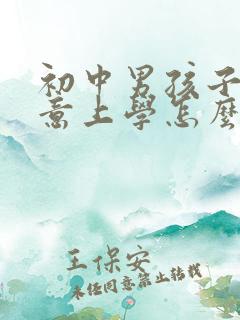 初中男孩子
意上學怎麼
王保安
未经同意禁止转载